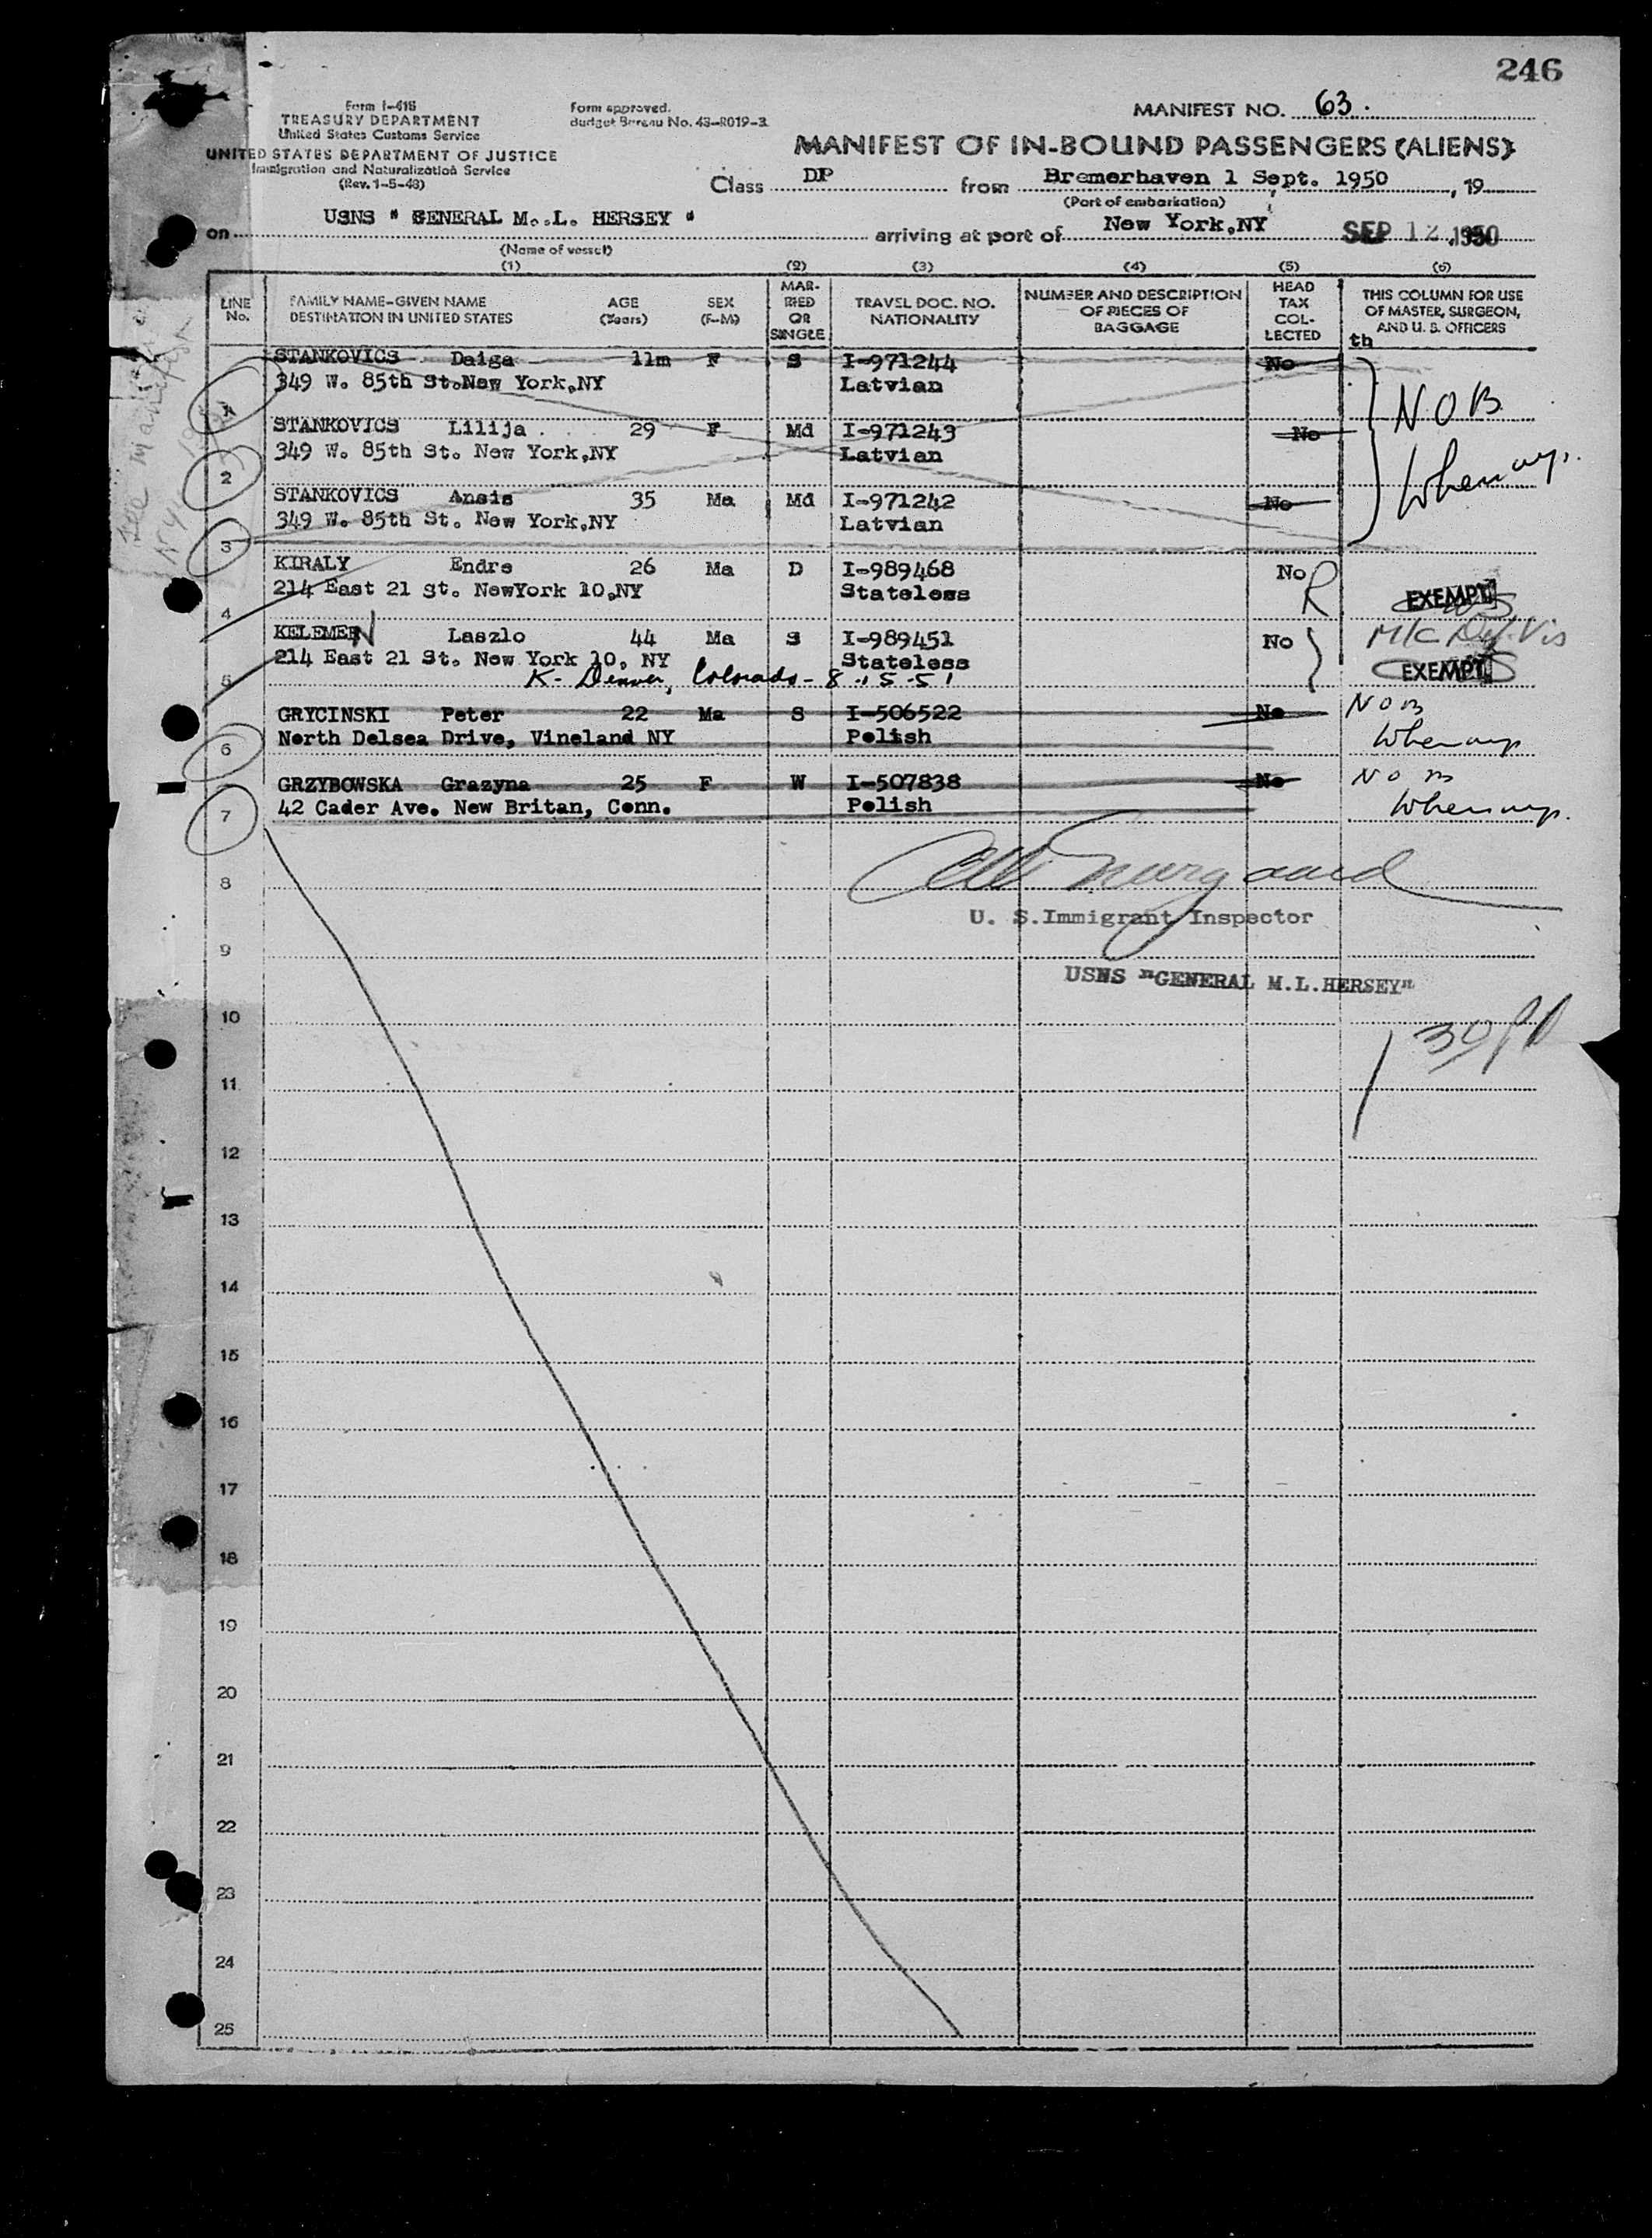 246
Form I-418
TREASURY DEPARTMENT
United States Customs Service
UNITED STATES DEPARTMENT OF JUSTICE
Immigration and Naturalization Service
(Rev. 1-5-48)
Form approved.
Budget Bureau No. 43-R019-3
MANIFEST NO. 63.
MANIFEST OF IN-BOUND PASSENGERS (ALIENS)
Class DP from Bremerhaven 1 Sept. 1950, 19
(Port of embarkation)
on USNS " GENERAL M..L. HERSEY " arriving at port of New York,NY SEP 12 1950
(Name of vessel)
(1) (2) (3) (4) (5) (6)
LINE No. FAMILY NAME-GIVEN NAME DESTINATION IN UNITED STATES AGE (Years) SEX (F-M) MARRIED OR SINGLE TRAVEL DOC. NO. NATIONALITY NUMBER AND DESCRIPTION OF PIECES OF BAGGAGE HEAD TAX COLLECTED THIS COLUMN FOR USE OF MASTER, SURGEON, AND U. S. OFFICERS
th
STANKOVICS Daiga 11m F S I-971244 No
1 349 W. 85th St.New York,NY Latvian
N O B
STANKOVICS Lilija 29 F Md I-971243 No
2 349 W. 85th St. New York,NY Latvian
STANKOVICS Ansis 35 Ma Md I-971242 No
3 349 W. 85th St. New York,NY Latvian
KIRALY Endre 26 Ma D I-989468 No R
4 214 East 21 St. NewYork 10,NY Stateless EXEMPT
KELEMEN Laszlo 44 Ma S I-989451 No
5 214 East 21 St. New York 10, NY Stateless EXEMPT
K- Denver, Colorado - 8.15.51
GRYCINSKI Peter 22 Ma S I-506522 No NOB
6 North Delsea Drive, Vineland NY Polish
GRZYBOWSKA Grazyna 25 F W I-507838 No NOB
7 42 Cader Ave. New Britan, Conn. Polish
8
U. S.Immigrant Inspector
9
USNS "GENERAL M.L.HERSEY"
10
11
12
13
14
15
16
17
18
19
20
21
22
23
24
25